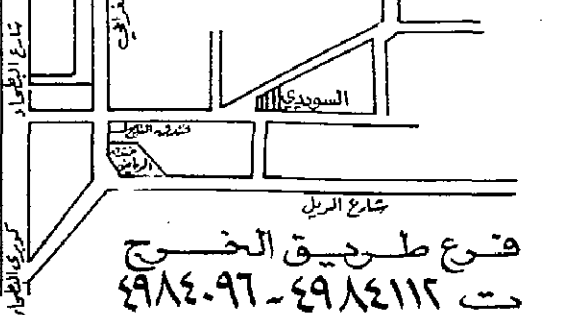 شارع البطحاء
السويدي
فندق الخليج
فندق الرياض
شارع الريل
كوبري البطحاء
فرع طريق الخرج
ت ٤٩٨٤١١٢ - ٤٩٨٤٠٩٦